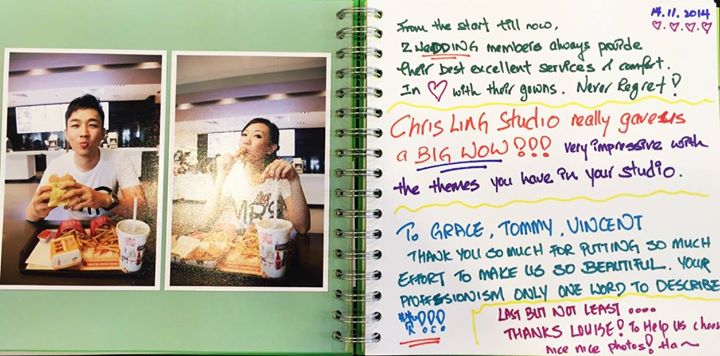 14.11.2014
From the start till now,
ZWEDDING members always provide
their best excellent services & comfort.
In ♡ with their gowns. Never Regret!
Chris Ling Studio really gave us
a BIG WOW!!! Very impressive with
the themes you have in your studio.
To GRACE, TOMMY, VINCENT
THANK YOU SO MUCH FOR PUTTING SO MUCH
EFFORT TO MAKE US SO BEAUTIFUL. YOUR
PROFFESIONISM ONLY ONE WORD TO DESCRIBE
LAST BUT NOT LEAST ....
THANKS LOUISE! To Help us choose
nice nice photos! Ha~